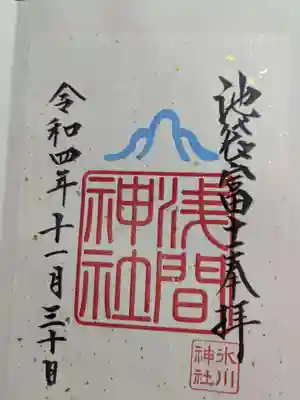 池袋富士奉拝
浅間
神社
氷川
神社
令和四年十一月三十日